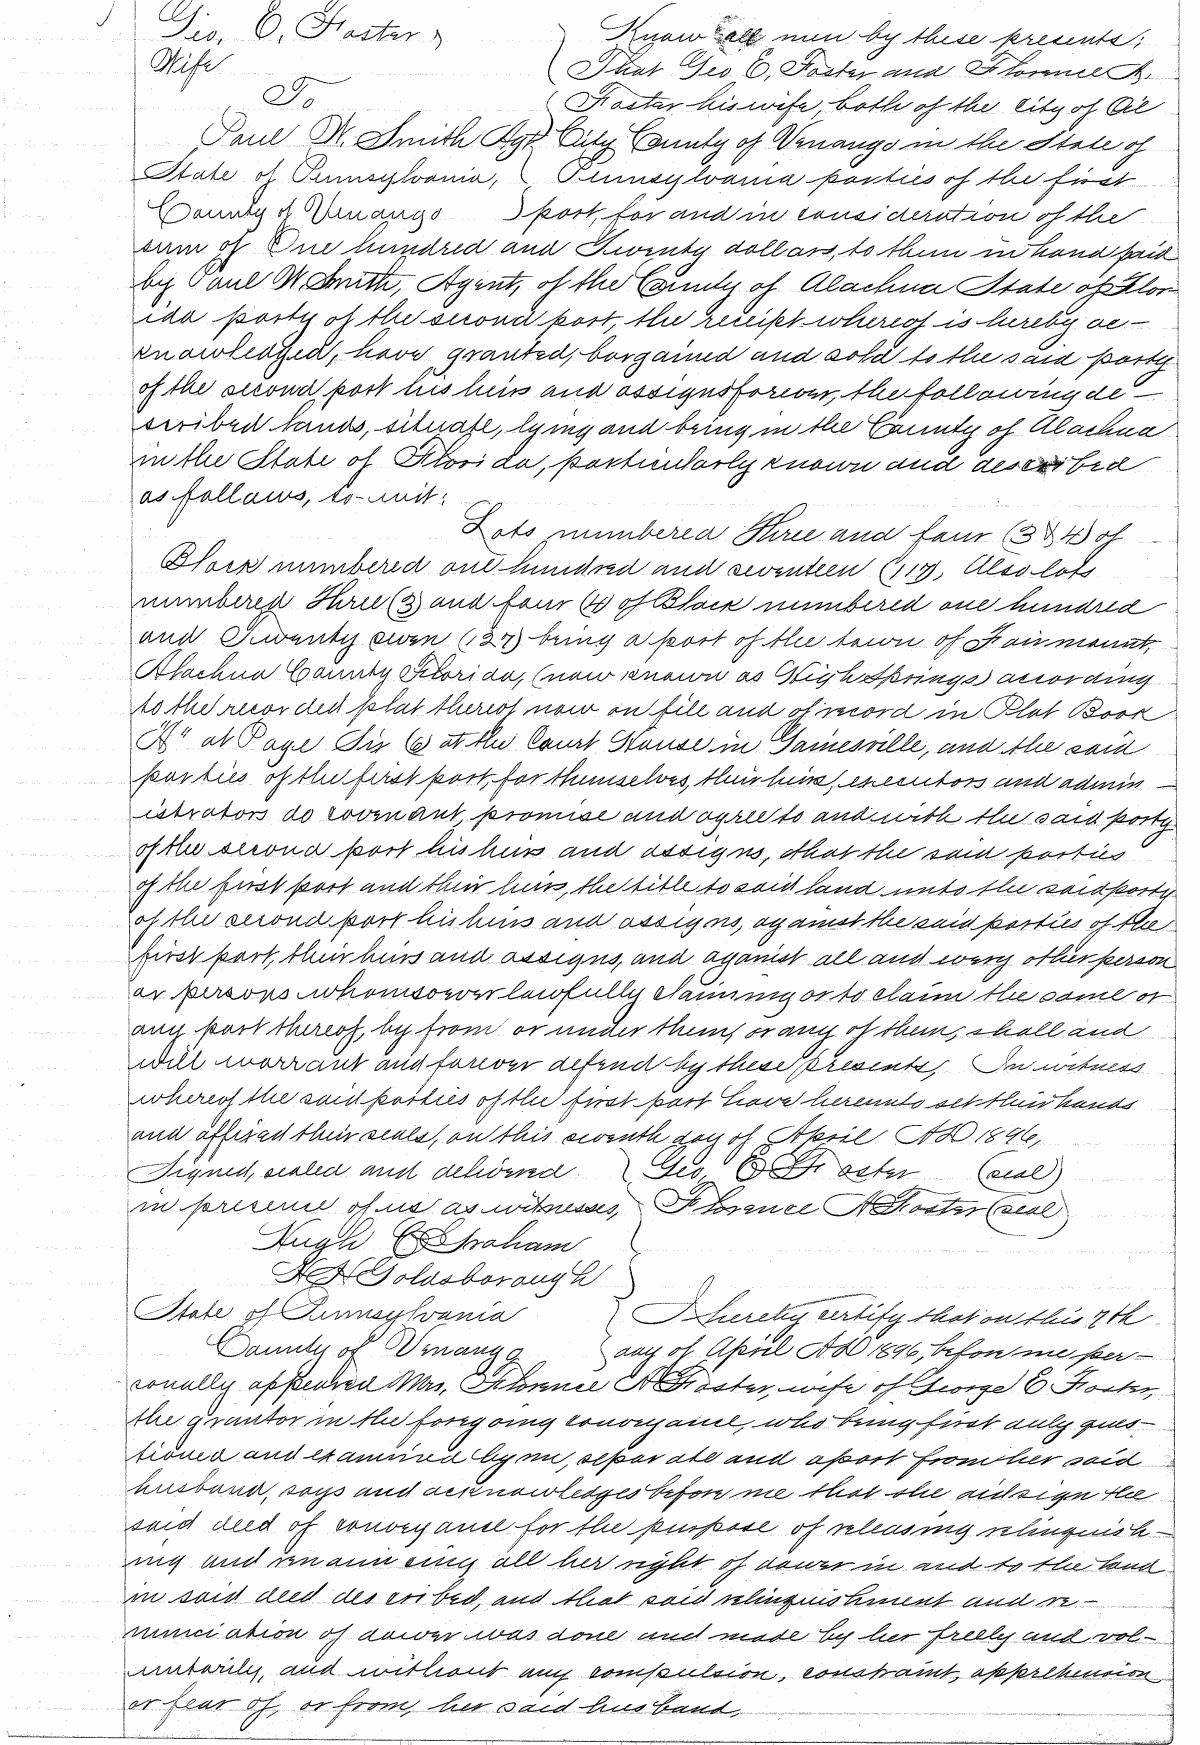 Geo, E, Foster &
Wife
To
Paul W. Smith Agt
State of Pennsylvania,
County of Venango
Know all men by these presents;
That Geo E, Foster and Florence A.
Foster his wife, both of the city of Oil
City County of Venango in the State of
Pennsylvania parties of the first
part, for and in consideration of the
sum of One hundred and Twenty dollars, to them in hand paid
by Paul W. Smith, Agent, of the County of Alachua State of Flor-
ida party of the second part, the receipt whereof is hereby ac-
knowledged, have granted, bargained and sold to the said party
of the second part his heirs and assigns forever, the following de-
scribed lands, situate, lying and being in the County of Alachua
in the State of Florida, particularly known and described
as follows, to-wit:
Lots numbered Three and four (3 & 4) of
Block numbered one hundred and seventeen (117), Also lots
numbered Three (3) and four (4) of Block numbered one hundred
and Twenty sven (127) being a part of the town of Fairmount,
Alachua County Florida, (now known as High Springs) according
to the recorded plat thereof now on file and of record in Plat Book
"A" at Page Six (6) at the Court House in Gainesville, and the said
parties of the first part, for themselves, their heirs, executors and admin-
istrators do covenant, promise and agree to and with the said party
of the second part his heirs and assigns, that the said parties
of the first part and their heirs, the title to said land unto the said party
of the second part his heirs and assigns, against the said parties of the
first part, their heirs and assigns, and aganist all and every other person
or persons whomsoever lawfully claiming or to claim the same or
any part thereof, by from or under them, or any of them, shall and
will warrant and forever defend by these presents, In witness
whereof the said parties of the first part have hereunto set their hands
and affixed their seals, on this seventh day of April AD 1896,
Signed, sealed and delivered
in presence of us as witnesses,
Geo, E Foster (seal)
Florence A Foster (seal)
Hugh C Graham
A H Goldsborough
State of Pennsylvania
County of Venango
I hereby certify that on this 7th
day of April AD 1896, before me per-
sonally appeared Mrs, Florence A Foster, wife of George E Foster,
the grantor in the foregoing conveyance, who being first duly ques-
tioned and examined by me, separate and apart from her said
husband, says and acknowledges before me that she did sign the
said deed of conveyance for the purpose of releasing relinquish-
ing and renouncing all her right of dower in and to the land
in said deed described, and that said relinquishment and re-
nunciation of dower was done and made by her freely and vol-
untarily, and without any compulsion, constraint, apprehension
or fear of, or from, her said husband,